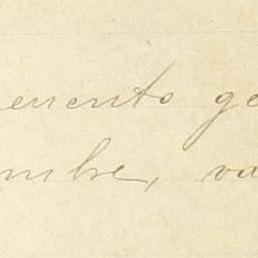 emento ge
mbre, va